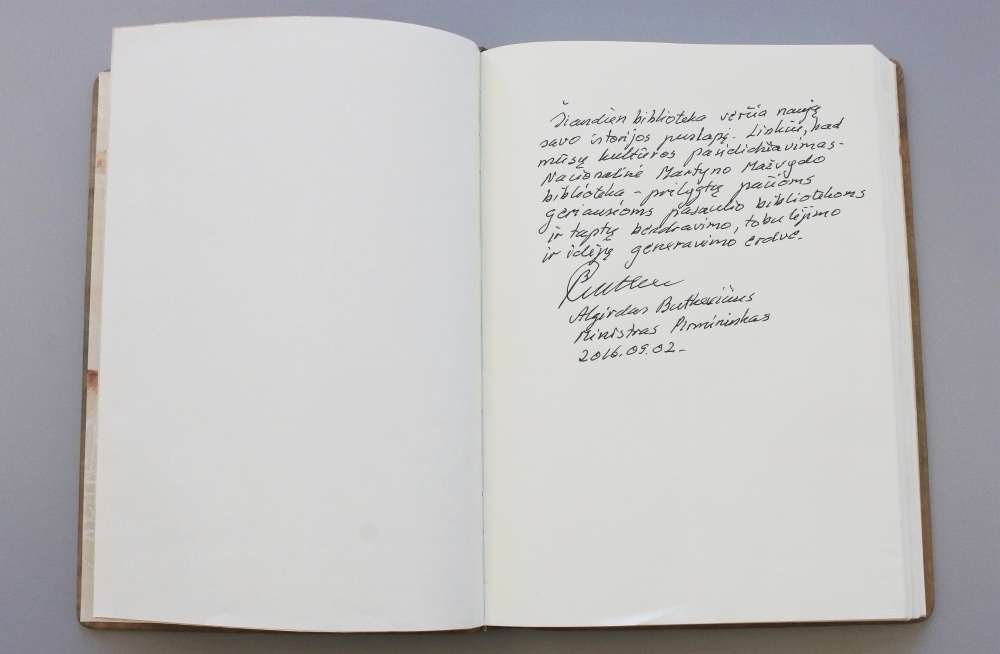 Šiandien biblioteka verčia naują
savo istorijos puslapį. Linkiu, kad
mūsų kultūros pasididžiavimas-
Nacionalinė Martyno Mažvydo
biblioteka - prilygtų pačioms
geriausioms pasaulio bibliotekoms
ir taptų bendravimo, tobulėjimo
ir idėjų generavimo erdvė.
Algirdas Butkevičius
Ministras Pirmininkas
2016.09.02.